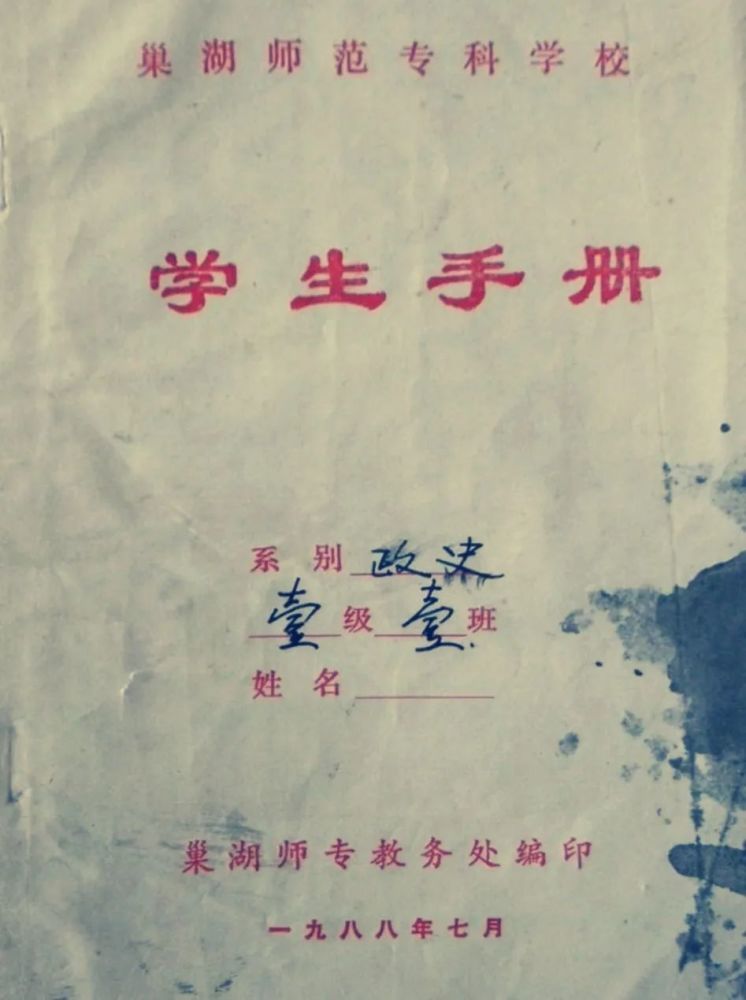 巢湖师范专科学校
学生手册
系别 政史
壹级壹班
姓名
巢湖师专教务处编印
一九八八年七月